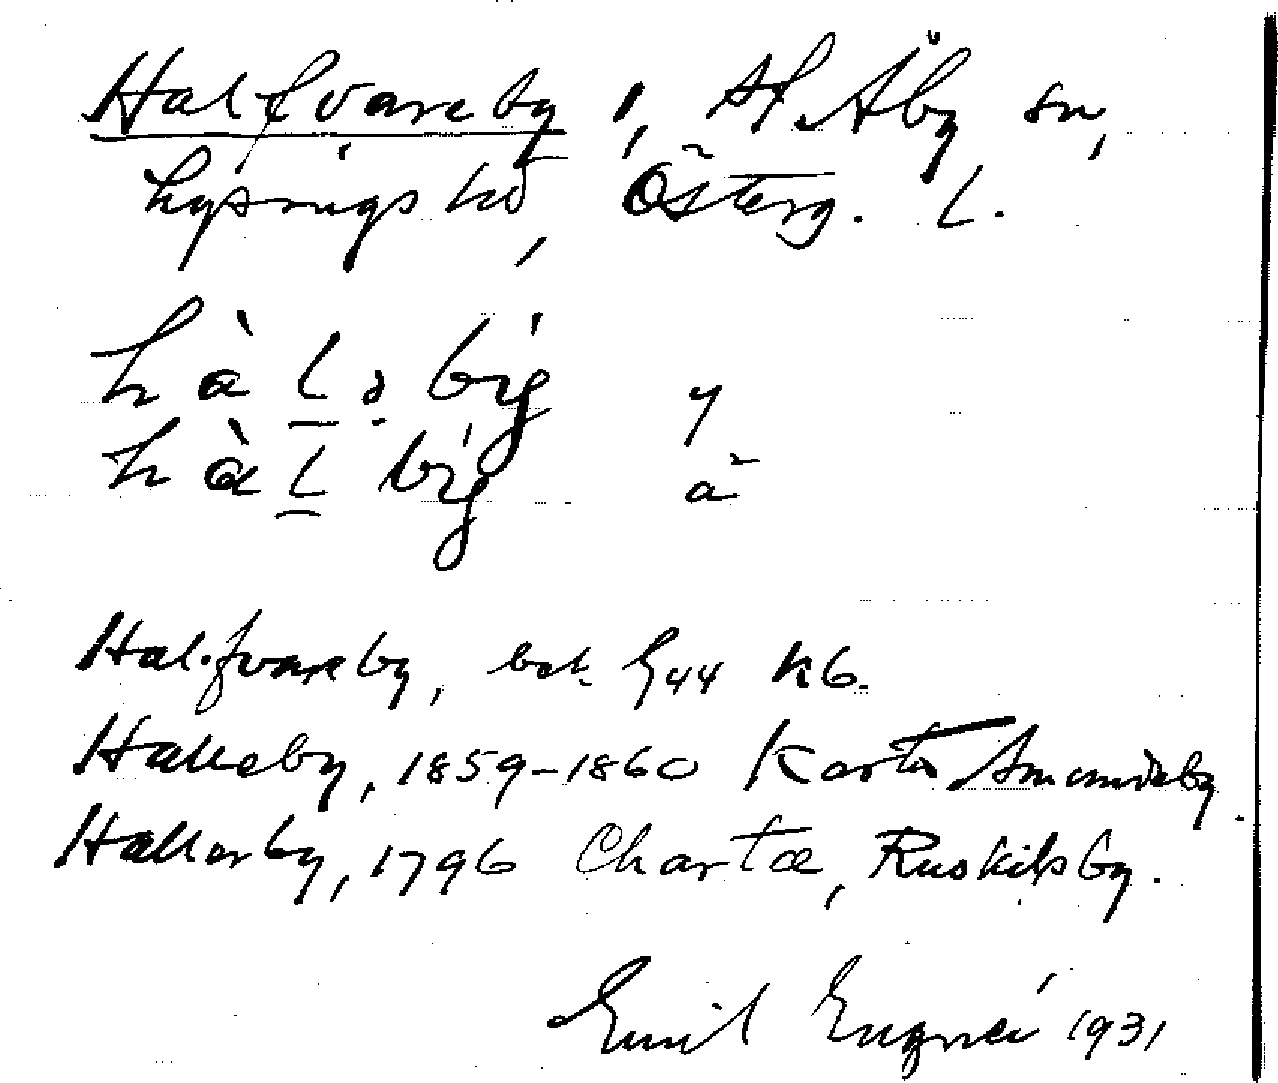 Halfvareby 1, St. Åby sn,
Lysings hd, Österg. L.
hàl̲ə býg y
hàl̲ býg ā
Halfvareby, bet. Kb.
Halleby, 1859-1860 Karta Amundeby.
Hallerby, 1796 Charta, Ruskilsby.
Emil Engné 1931